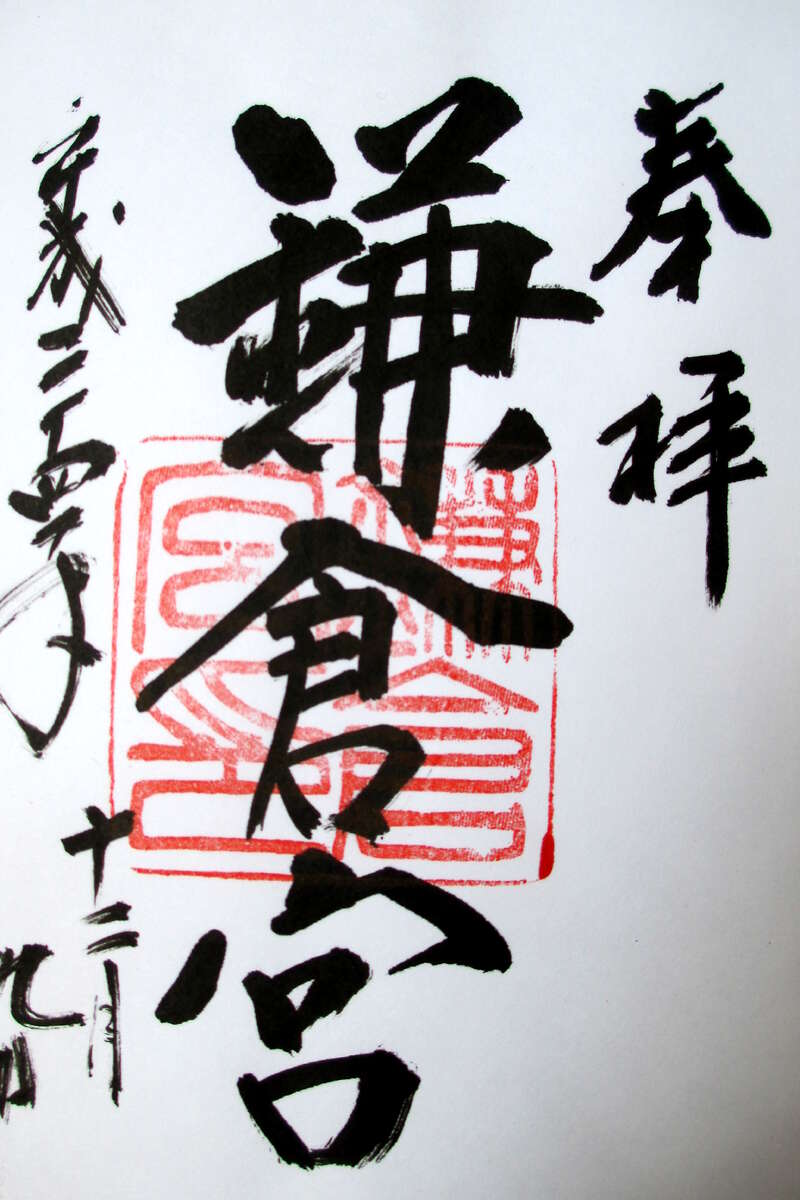 奉拝
鎌倉宮
鎌倉
宮印
平成二十四年
十二月
九日